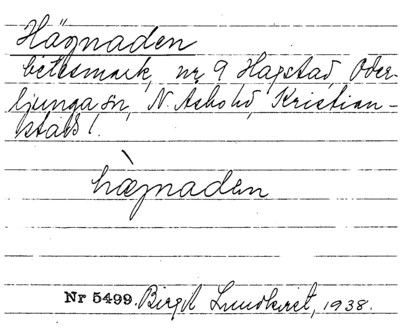 Hägnaden
betesmark, nr 9 Hagstad, Oder-
ljunga sn, N. Åsbo hd, Kristian-
stads l.
hægnaden
Nr 5499. Birgit Lundkvist, 1938.